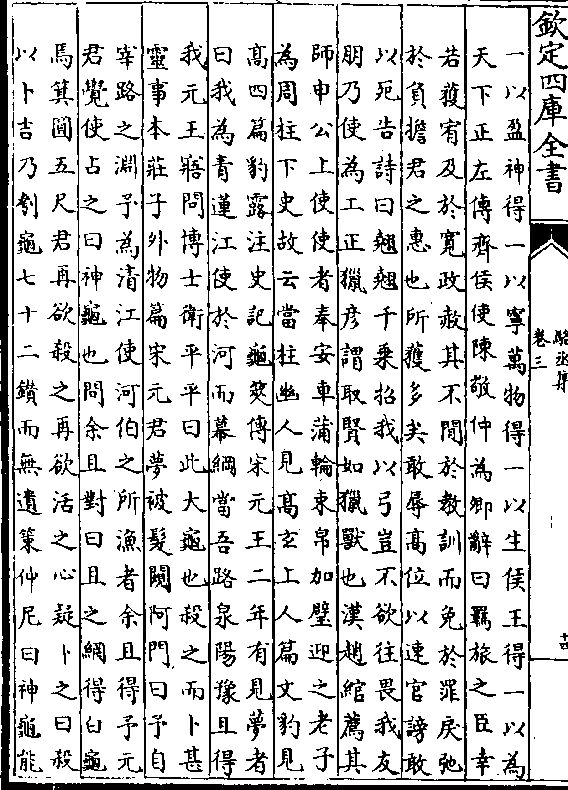 欽定四庫全書
駱丞集
卷三
一以盈神得一以寧萬物得一以生侯王得一以為
天下正左傳齊侯使陳敬仲為卿辭曰羈旅之臣幸
若獲宥及於寛政赦其不閒於教訓而免於罪戾弛
於負擔君之惠也所獲多矣敢辱髙位以速官謗敢
以死告詩曰翹翹千乗招我以弓豈不欲往畏我友
朋乃使為工正獵彦謂取賢如獵獸也漢趙綰薦其
師申公上使使者奉安車蒲輪束帛加璧迎之老子
為周柱下史故云當柱幽人見髙玄上人篇文豹見
髙四篇豹露注史記龜筴傳宋元王二年有見夢者
曰我為青蓮江使於河而幕網當吾路泉陽豫且得
我元王寤問博士衛平平曰此大龜也殺之而卜甚
靈事本莊子外物篇宋元君夢被髮闚阿門曰予自
宰路之淵予為清江使河伯之所漁者余且得予元
君覺使占之曰神龜也問余且對曰且之網得白龜
焉箕圓五尺君再欲殺之再欲活之心疑卜之曰殺
以卜吉乃刳龜七十二鑽而無遺䇲仲尼曰神龜能